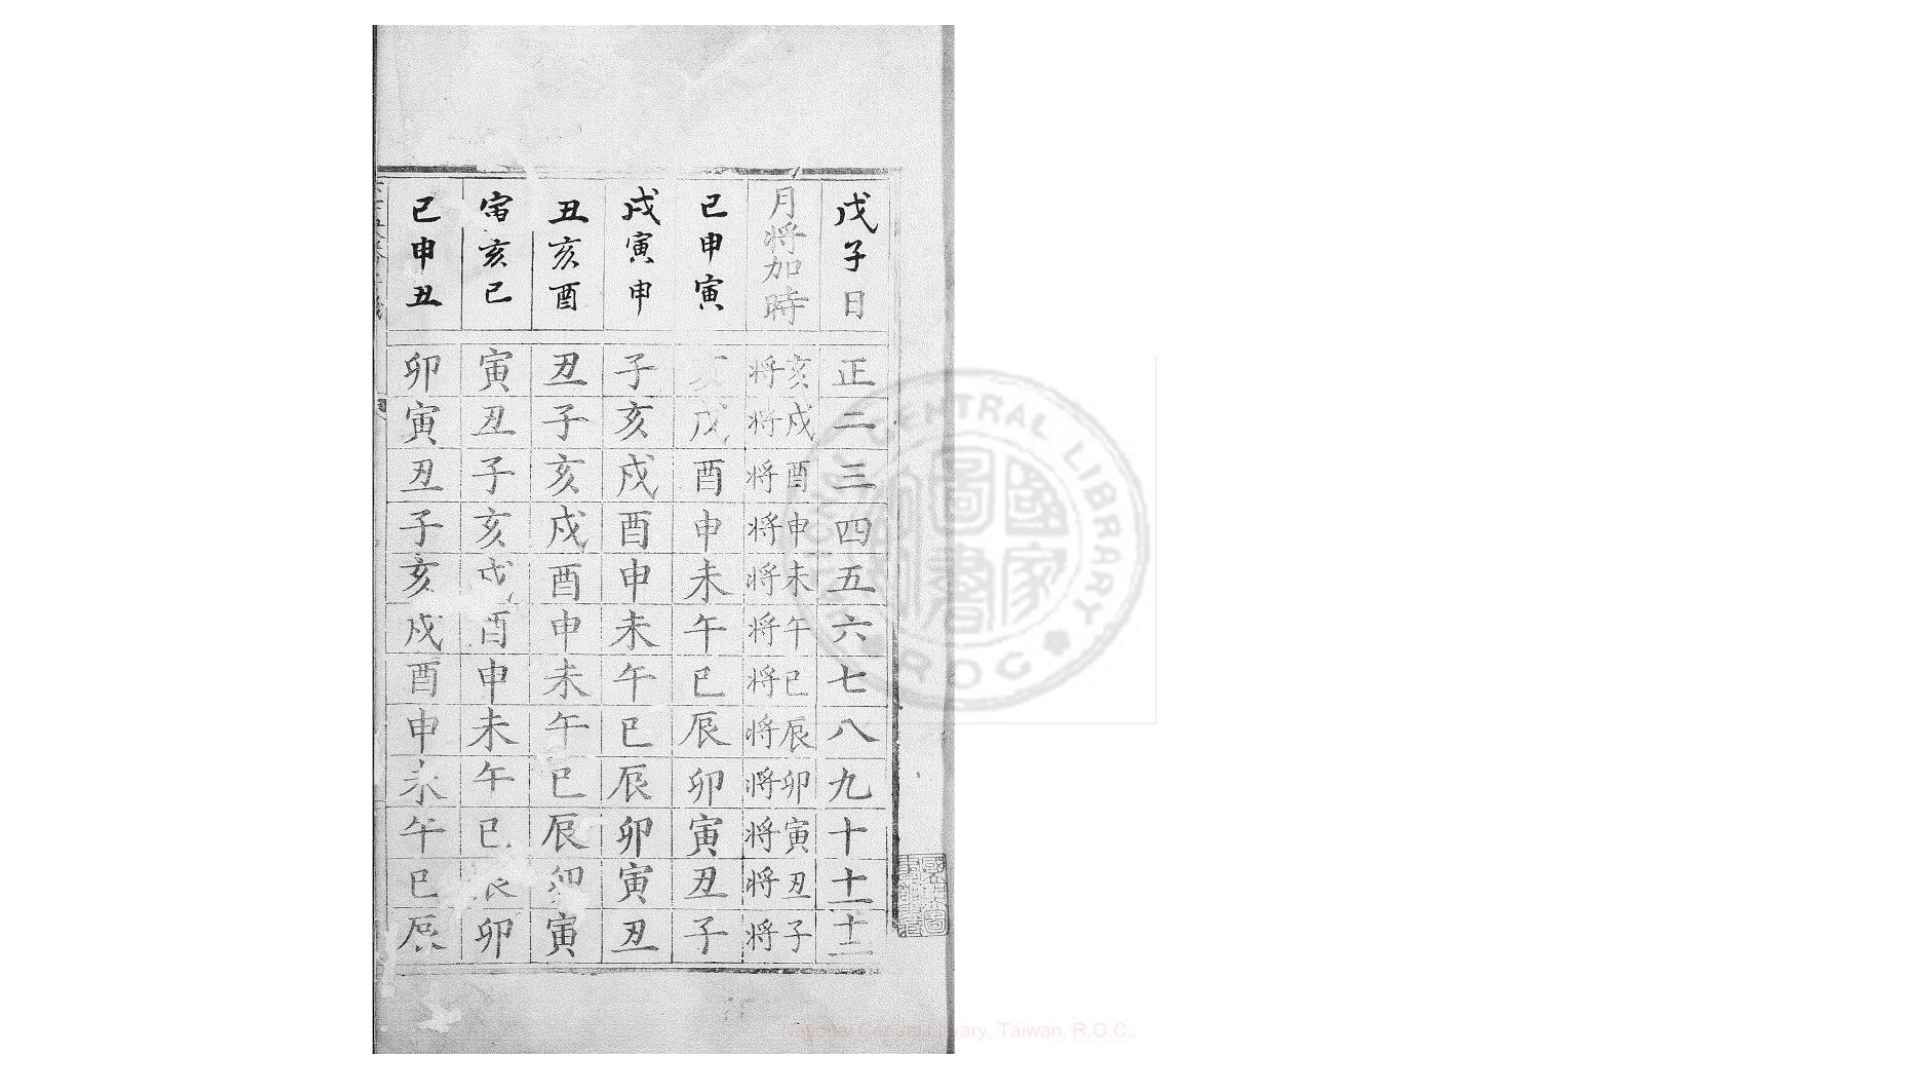 戊子日正二三四五六七八九十十一十二
月将加時亥将戌将酉将申将未将午将巳将辰将卯将寅将丑将子将
巳申寅亥戌酉申未午巳辰卯寅丑子
戌寅申子亥戌酉申未午巳辰卯寅丑
丑亥酉丑子亥戌酉申未午巳辰卯寅
寅亥巳寅丑子亥戌酉申未午巳辰卯
巳申丑卯寅丑子亥戌酉申未午巳辰
CENTRAL LIBRARY
R O C
國家圖書
Library, Taiwan, R.O.C.